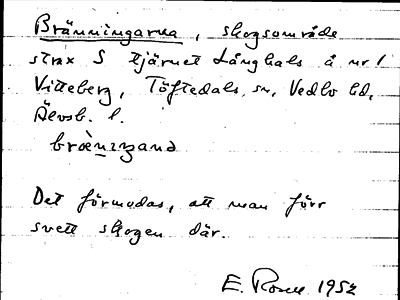 Bränningarna, skogsområde
strax S tjärnet Långhals å nr 1
Vitteberg, Töftedals sn, Vedbo hd,
Älvsb. l.
Det förmodas, att man förr
svett skogen där.
E. Rosen 1952